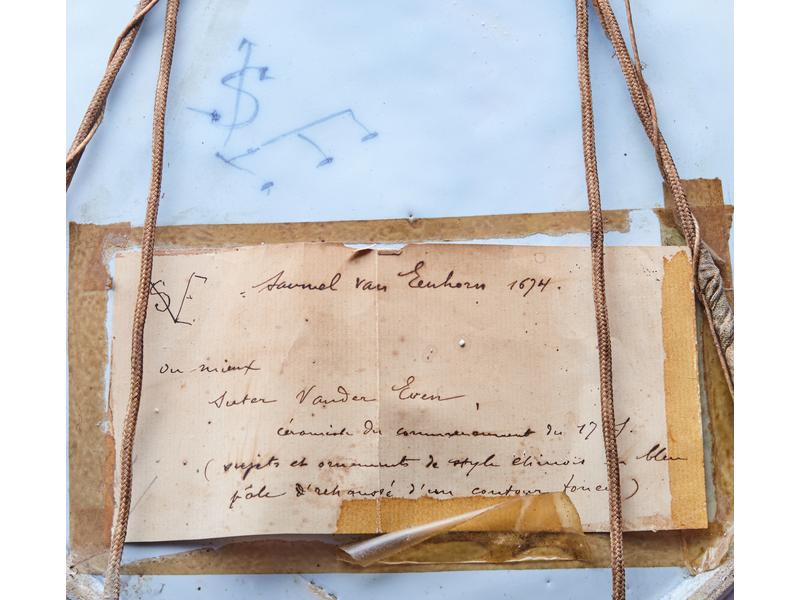 SVE
SVE Samuel van Eenhorn 1674.
ou mieux
Suter Vander Even,
céramiste du commencement du 17 S.
(sujets et ornements de style chinois bleu
pâle d'rehaussé d'un contour foncé)